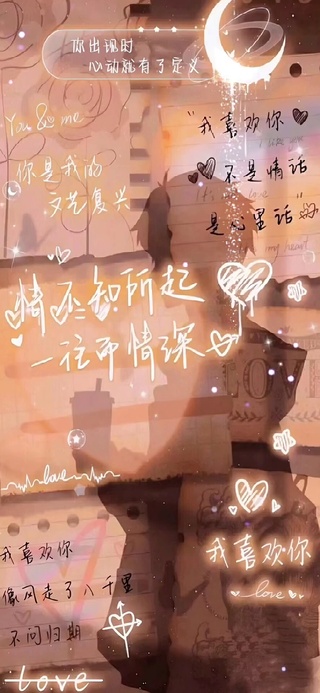 你出现时
心动就有了定义
You & me
你是我的
文艺复兴
"我喜欢你
I like you
不是情话
是心里话"
my heart
情不知所起
一往而情深
LOVE
love
我喜欢你
像风走了八千里
不问归期
我喜欢你
love
love